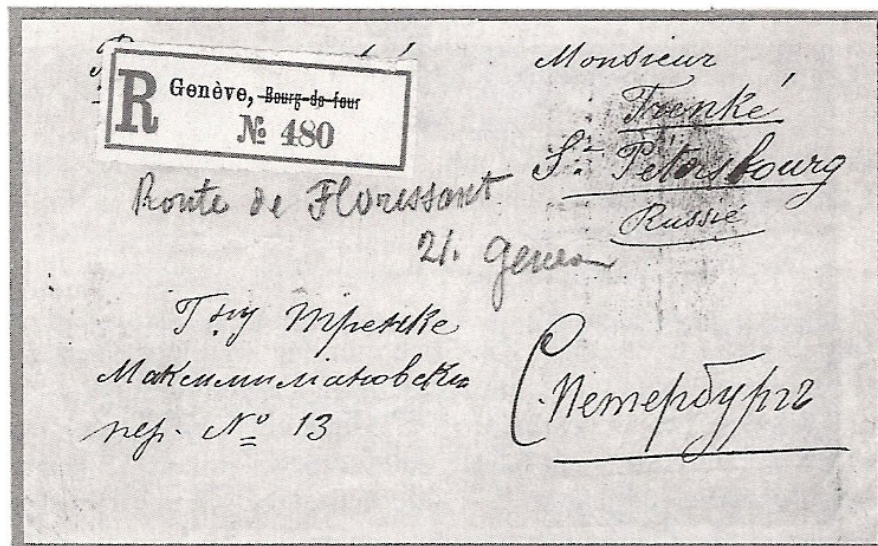 R Genève, Bourg-de-four
№ 480
Monsieur
Trenké
St. Pétersbourg
Russie
Route de Florissant
21. Geneve
Гну Тренке
Максимилиановскій
пер. № 13
С. Петербургъ